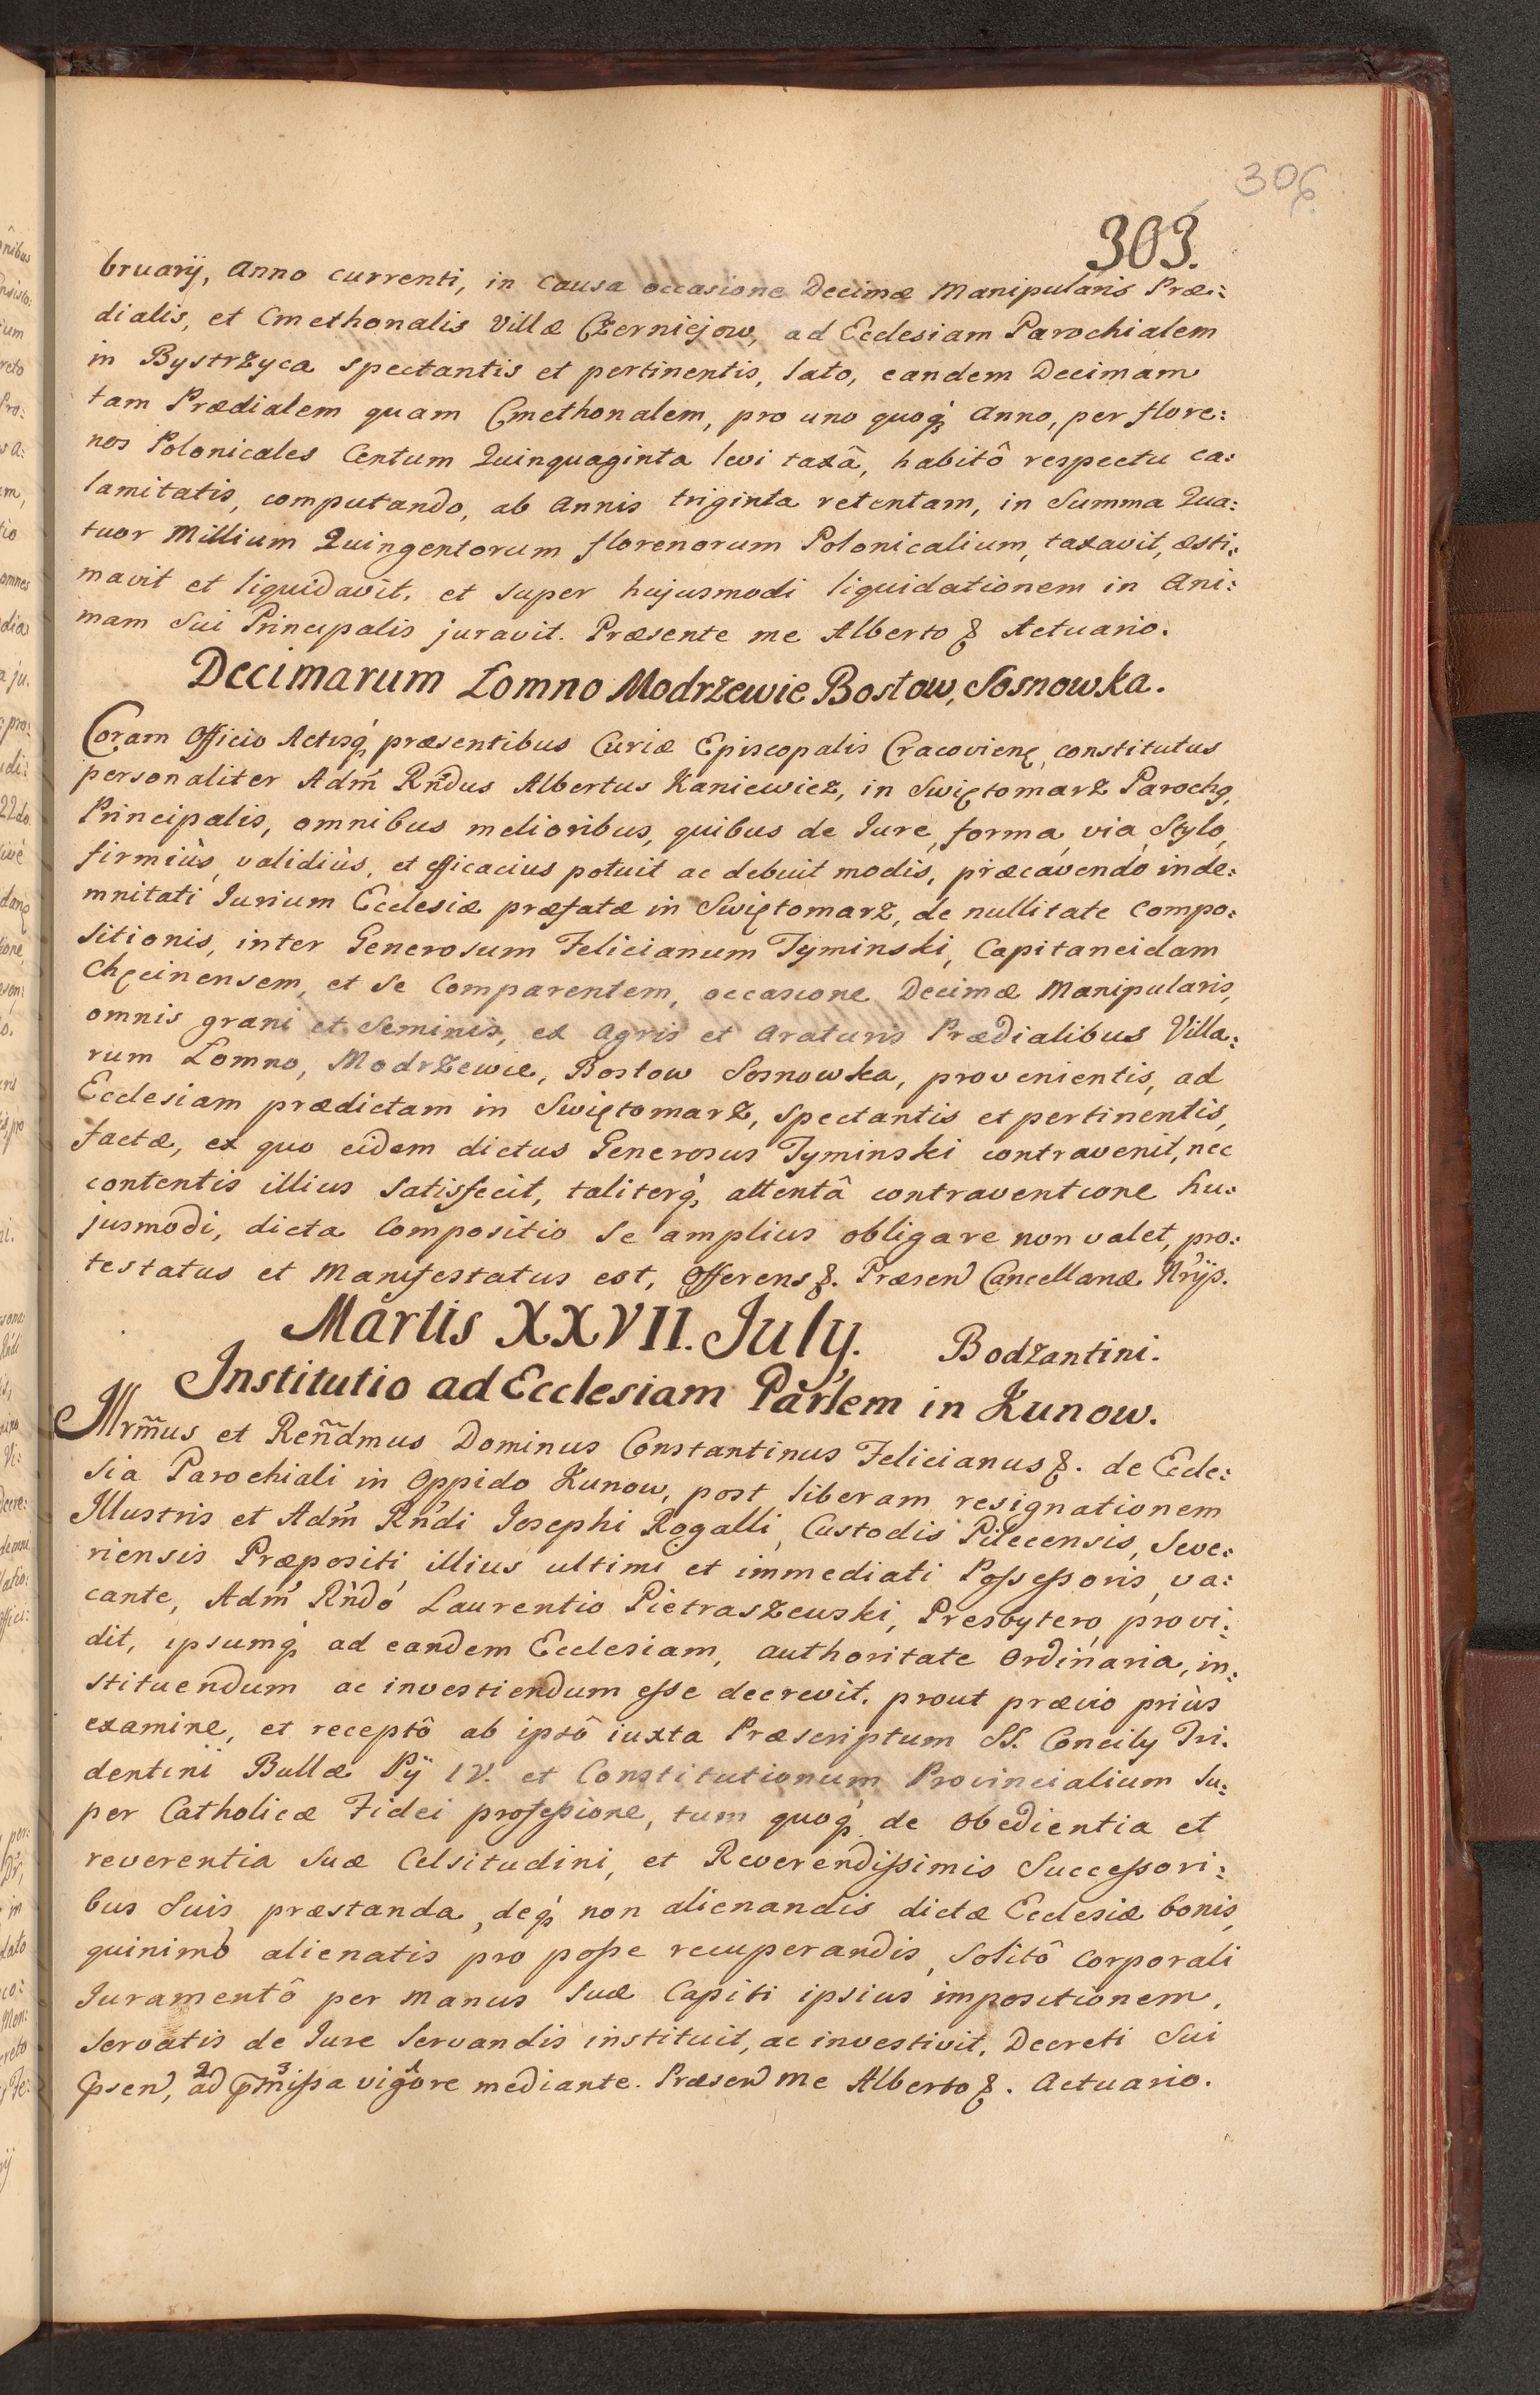 306.
303.
bruarij, Anno currenti, in causa occasione Decimæ Manipularis Præ:
dialis, et Cmethonalis Villæ Czerniejow, ad Ecclesiam Parochialem
in Bystrzyca spectantis et pertinentis, lato, eandem Decimam
tam Prædialem quam Cmethonalem, pro uno quoq́ Anno, per flore:
nos Polonicales Centum Quinquaginta levi taxâ, habitô respectu ca:
lamitatis, computando, ab Annis triginta retentam, in Summa Qua:
tuor Millium Quingentorum florenorum Polonicalium, taxavit, æsti:
mavit et liquidavit, et super hujusmodi liquidationem in Ani:
mam Sui Principalis juravit. Præsente me Alberto & Actuario.
Decimarum Lomno Modrzewie Bostow, Sosnowka.
Coram Officio Actisq́ præsentibus Curiæ Episcopalis Cracovienę, constitutus
personaliter Adm̃ Rñdus Albertus Kaniewicz, in Swiętomarz Parochg,
Principalis, omnibus melioribus, quibus de Iure, forma, via, Stylo,
firmiùs, validiùs, et efficacius potuit ac debuit modis, præcavendo inde:
mnitati Iurium Ecclesiæ præfatæ in Swiętomarz, de nullitate Compo:
sitionis, inter Generosum Felicianum Tyminski, Capitaneidam
Chęcinensem, et Se Comparentem, occasione Decimæ Manipularis,
omnis grani et Seminis, ex Agris et Araturis Prædialibus Villa:
rum Lomno, Modrzewie, Bostow Sosnowka, provenientis, ad
Ecclesiam prædictam in Swiętomarz, spectantis et pertinentis,
factæ, ex quo eidem dictus Generosus Tyminski contravenit, nec
contentis illius satisfecit, taliterq́, attentâ contraventione hu:
jusmodi, dicta Compositio Se amplius obligare non valet, pro:
testatus et Manifestatus est, Offerens &. Præsen Cancellariæ Nrijs.
Martis XXVII. July. Bodzantini.
Institutio ad Ecclesiam Parlem in Kunow.
Illrm̃us et Reñdmus Dominus Constantinus Felicianus &. de Eccle:
sia Parochiali in Oppido Kunow, post liberam resignationem
Illustris et Adm̃ Rñdi Iosephi Rogalli, Custodis Pilecensis, Seve:
riensis Præpositi illius ultimi et immediati Possessoris, va:
cante, Adm̃ Rñdo Laurentio Pietraszewski, Presbytero, provi:
dit, ipsumq́ ad eandem Ecclesiam, authoritate Ordinaria, in:
stituendum ac investiendum esse decrevit, prout prævio priùs
examine, et receptô ab ipsô iuxta Præscriptum SS. Concily Tri:
dentini Bullæ Pÿ IV. et Constitutionum Provincialium Su:
per Catholicæ Fidei professione, tum quoq́ de obedientia et
reverentia Suæ Celsitudini, et Reverendissimis Successori:
bus Suis, præstanda, deq́ non alienandis dictæ Ecclesiæ bonis,
quinimò alienatis pro posse recuperandis, Solitô Corporali
Iuramentô per manus Suæ Capiti ipsius impositionem,
servatis de Iure Servandis instituit, ac investivit, Decreti Sui
p̃sen, ad p̃missa vigore mediante. Præsen me Alberto &. Actuario.